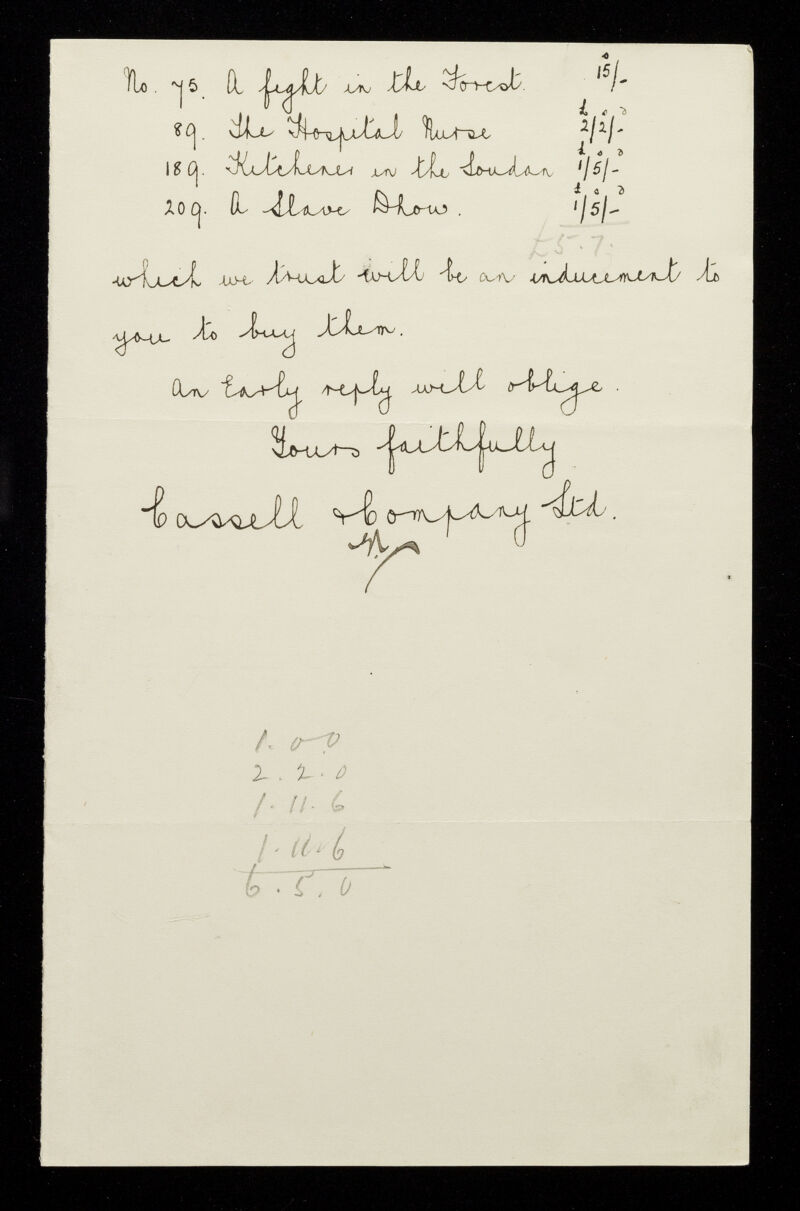 No. 75. A fight in the Forest. 15/-
89. The Hospital Nurse £2/2/-
189. Kitchener in the Soudan £1/5/-
209. A Slave Dhow. £1/5/-
£5.7.
which we trust will be an inducement to
you to buy them.
An Early reply will oblige.
Yours faithfully
Cassell & Company Ltd.
1.0.0
2.2.0
1.11.6
1.11.6
6.5.0